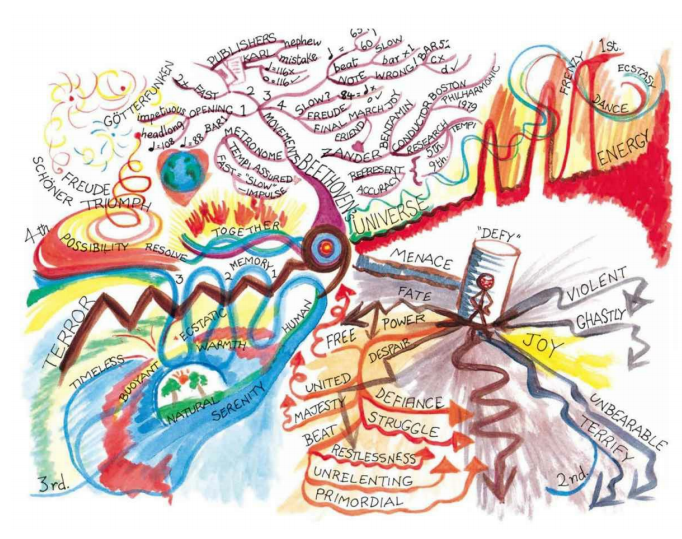 PUBLISHERS
KARL
nephew
mistake
♩=116x
𝅗𝅥=116✓
2x FAST
impetuous
headlong
♩=108
♩=88
OPENING
BAR 1
1
2
3
4
MOVEMENTS
BEETHOVEN'S
METRONOME
TEMPI ASSURED
FAST & "SLOW"
IMPULSE
beat
NOTE
60
SLOW
bar x1
WRONG!
BAR 5:
c x
d √
SLOW?
FREUDE
84=
FINAL MARCH
JOY
FRIEND
ZANDER
BENJAMIN
CONDUCTOR
BOSTON
PHILHARMONIC
1979
RESEARCH
TEMPI
5th
9th
REPRESENT
ACCURACY
UNIVERSE
1st.
FRENZY
ECSTASY
DANCE
ENERGY
GÖTTERFUNKEN
SCHÖNER
FREUDE
TRIUMPH
4th
POSSIBILITY
RESOLVE
TOGETHER
MEMORY
3
2
1
TERROR
ECSTATIC
WARMTH
HUMAN
TIMELESS
BUOYANT
NATURAL
SERENITY
3rd.
"DEFY"
MENACE
FATE
POWER
FREE
DESPAIR
UNITED
MAJESTY
BEAT
DEFIANCE
STRUGGLE
RESTLESSNESS
UNRELENTING
PRIMORDIAL
VIOLENT
GHASTLY
JOY
UNBEARABLE
TERRIFY
2nd.